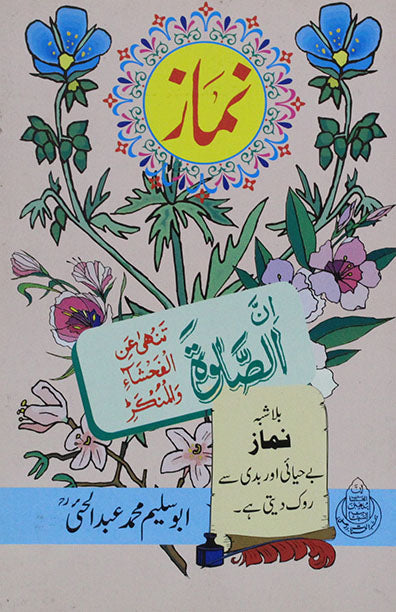 نماز
إِنَّ
الصَّلٰوةَ
تَنْهٰى عَنِ
الْفَحْشَآءِ
وَالْمُنْكَرِ
بلاشبہ
نماز
بے حیائی اور بدی سے
روک دیتی ہے۔
ابو سلیم محمد عبدالحئی